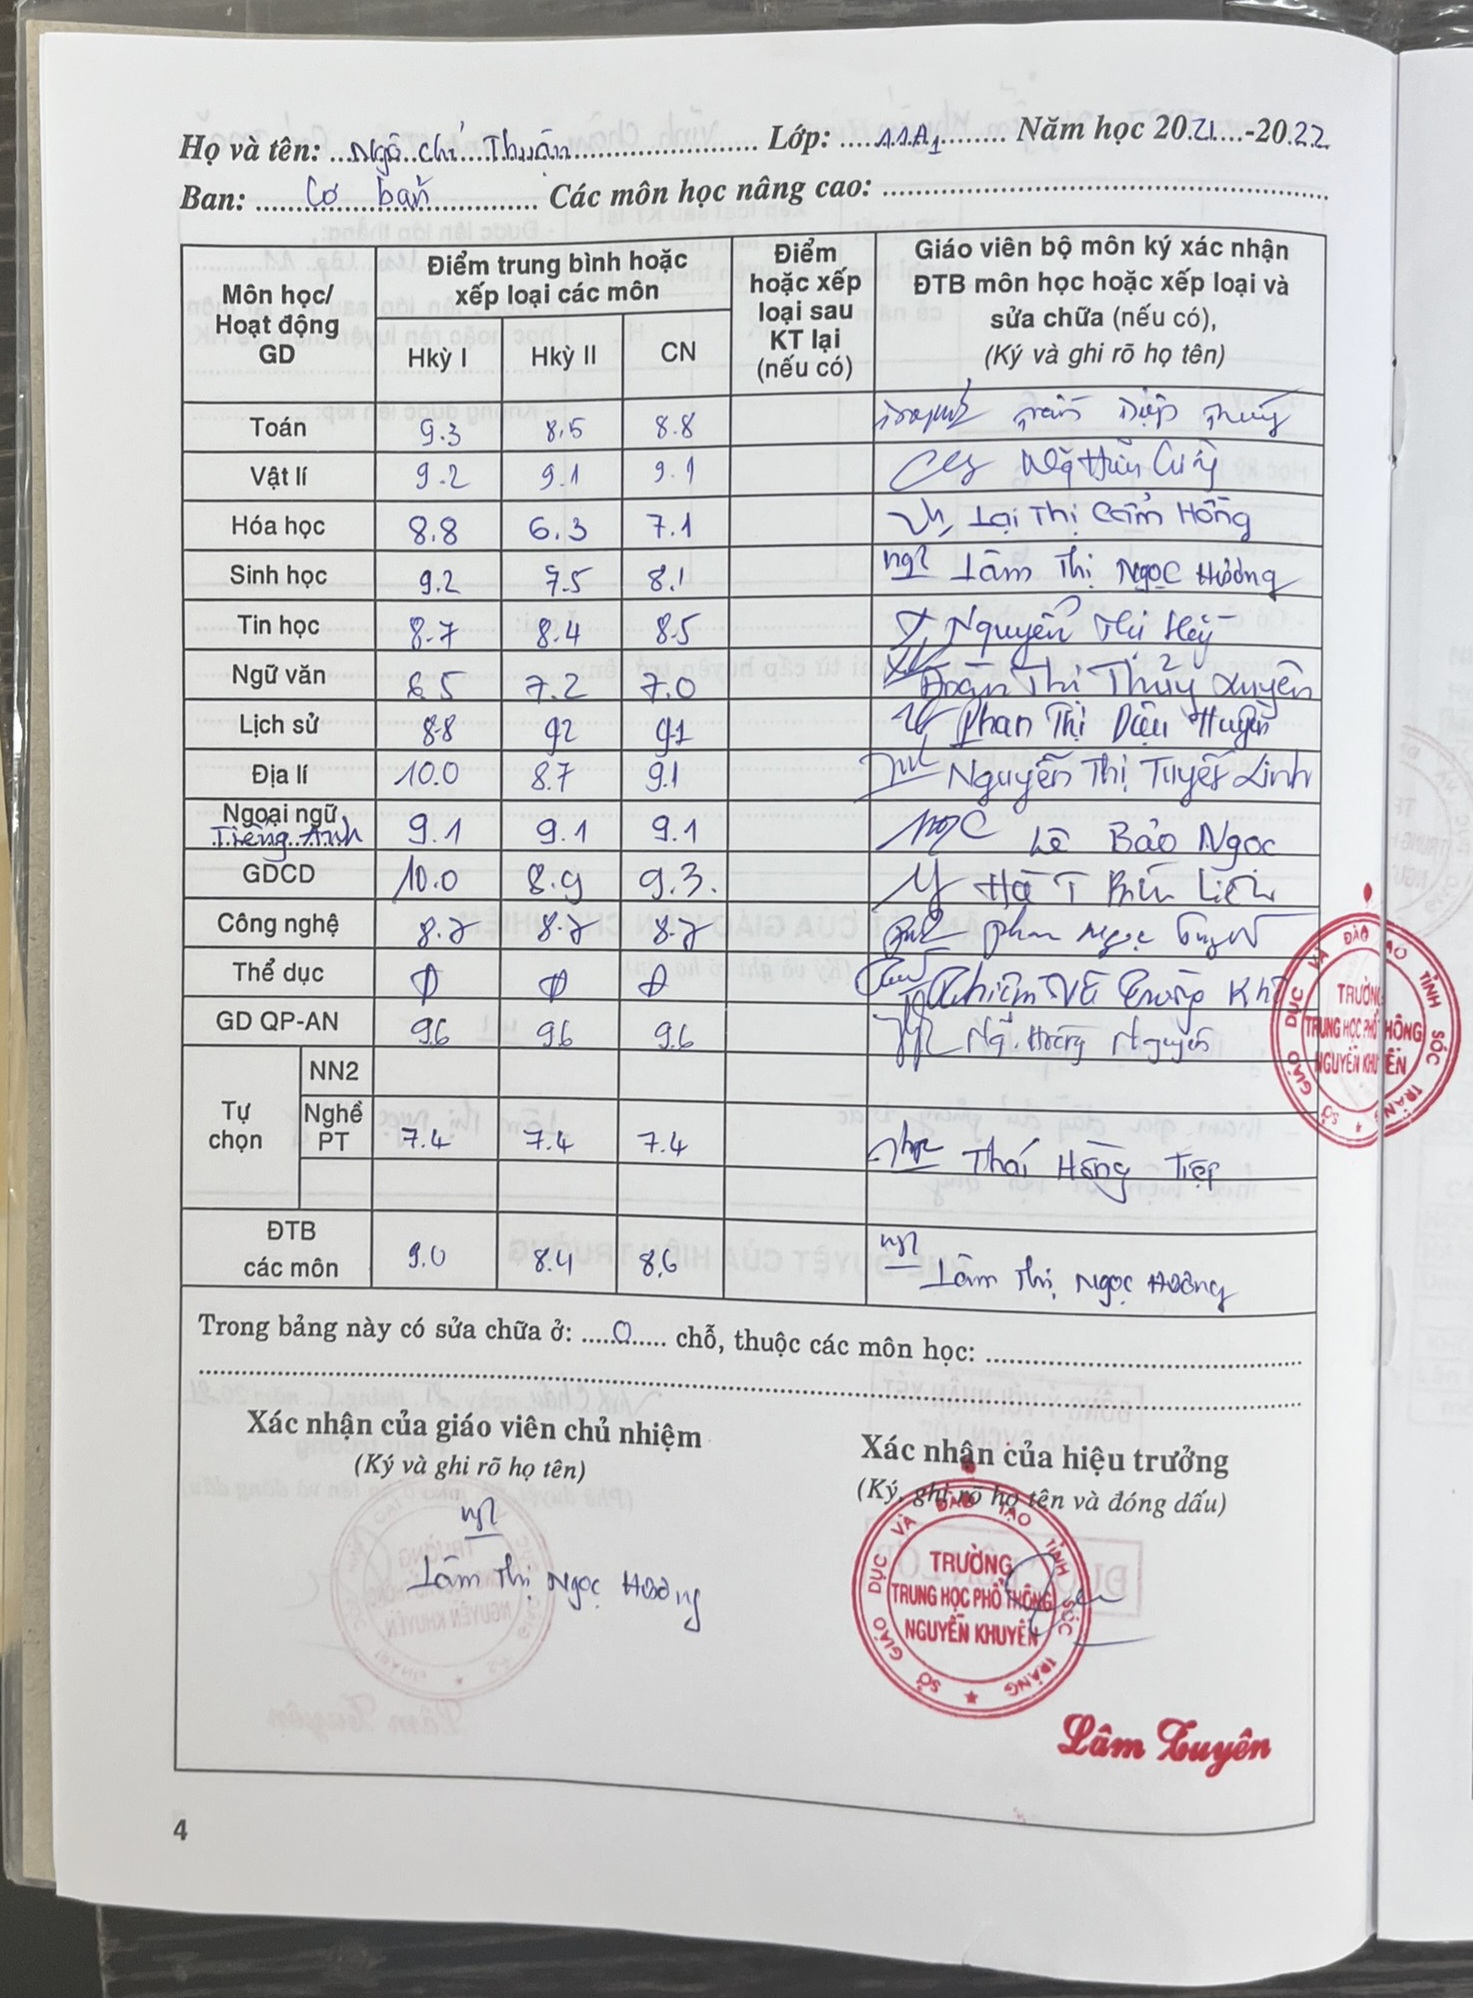 Họ và tên: Ngô Chí Thuận Lớp: 11A1 Năm học 2021-2022
Ban: Cơ bản Các môn học nâng cao:
Môn học/ Hoạt động GD
Điểm trung bình hoặc xếp loại các môn
Hkỳ I Hkỳ II CN
Điểm hoặc xếp loại sau KT lại (nếu có)
Giáo viên bộ môn ký xác nhận ĐTB môn học hoặc xếp loại và sửa chữa (nếu có),
(Ký và ghi rõ họ tên)
Toán 9.3 8.5 8.8 Trần Diệp Thúy
Vật lí 9.2 9.1 9.1
Hóa học 8.8 6.3 7.1 Lại Thị Cẩm Hồng
Sinh học 9.2 7.5 8.1 ngl Lâm Thị Ngọc Hương
Tin học 8.7 8.4 8.5 Nguyễn
Ngữ văn 6.5 7.2 7.0 Đoàn Thị Thúy Xuyên
Lịch sử 8.8 9.2 9.1 Phan Thị Diệu Huyền
Địa lí 10.0 8.7 9.1 Nguyễn Thị Tuyết Linh
Ngoại ngữ Tiếng Anh 9.1 9.1 9.1 Ngọc Lê Bảo Ngọc
GDCD 10.0 8.9 9.3. Hà T Bích Liên
Công nghệ 8.7 8.7 8.7 Phan Ngọc
Thể dục Đ Đ Đ
GD QP-AN 9.6 9.6 9.6 Ng. Hoàng Nguyên
Tự chọn
NN2
Nghề PT 7.4 7.4 7.4 Thái Hồng Tiệp
ĐTB các môn 9.0 8.4 8.6 ngl Lâm Thị Ngọc Hương
Trong bảng này có sửa chữa ở: 0 chỗ, thuộc các môn học:
Xác nhận của giáo viên chủ nhiệm
(Ký và ghi rõ họ tên)
ngl
Lâm Thị Ngọc Hương
Xác nhận của hiệu trưởng
(Ký, ghi rõ họ tên và đóng dấu)
SỞ GIÁO DỤC VÀ ĐÀO TẠO TỈNH SÓC TRĂNG
TRƯỜNG
TRUNG HỌC PHỔ THÔNG
NGUYỄN KHUYẾN
Lâm Tuyên
SỞ GIÁO DỤC VÀ ĐÀO TẠO TỈNH SÓC TRĂNG
TRƯỜNG
TRUNG HỌC PHỔ THÔNG
NGUYỄN KHUYẾN
4